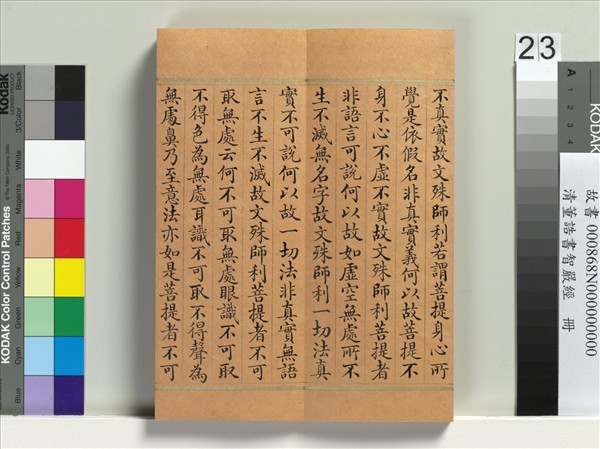 不真實故文殊師利若謂菩提身心所
覺是依假名非真實義何以故菩提不
身不心不虛不實故文殊師利菩提者
非語言可說何以故如虛空無處所不
生不滅無名字故文殊師利一切法真
實不可說何以故一切法非真實無語
言不生不滅故文殊師利菩提者不可
取無處云何不可取無處眼識不可取
不得色為無處耳識不可取不得聲為
無處鼻乃至意法亦如是菩提者不可
23
故書 000868N000000000
清董誥書智嚴經 冊
KODAK Color Control Patches
Kodak
Blue
Cyan
Green
Yellow
Red
Magenta
White
3/Color
Black
KODAK
A
1
2
3
4